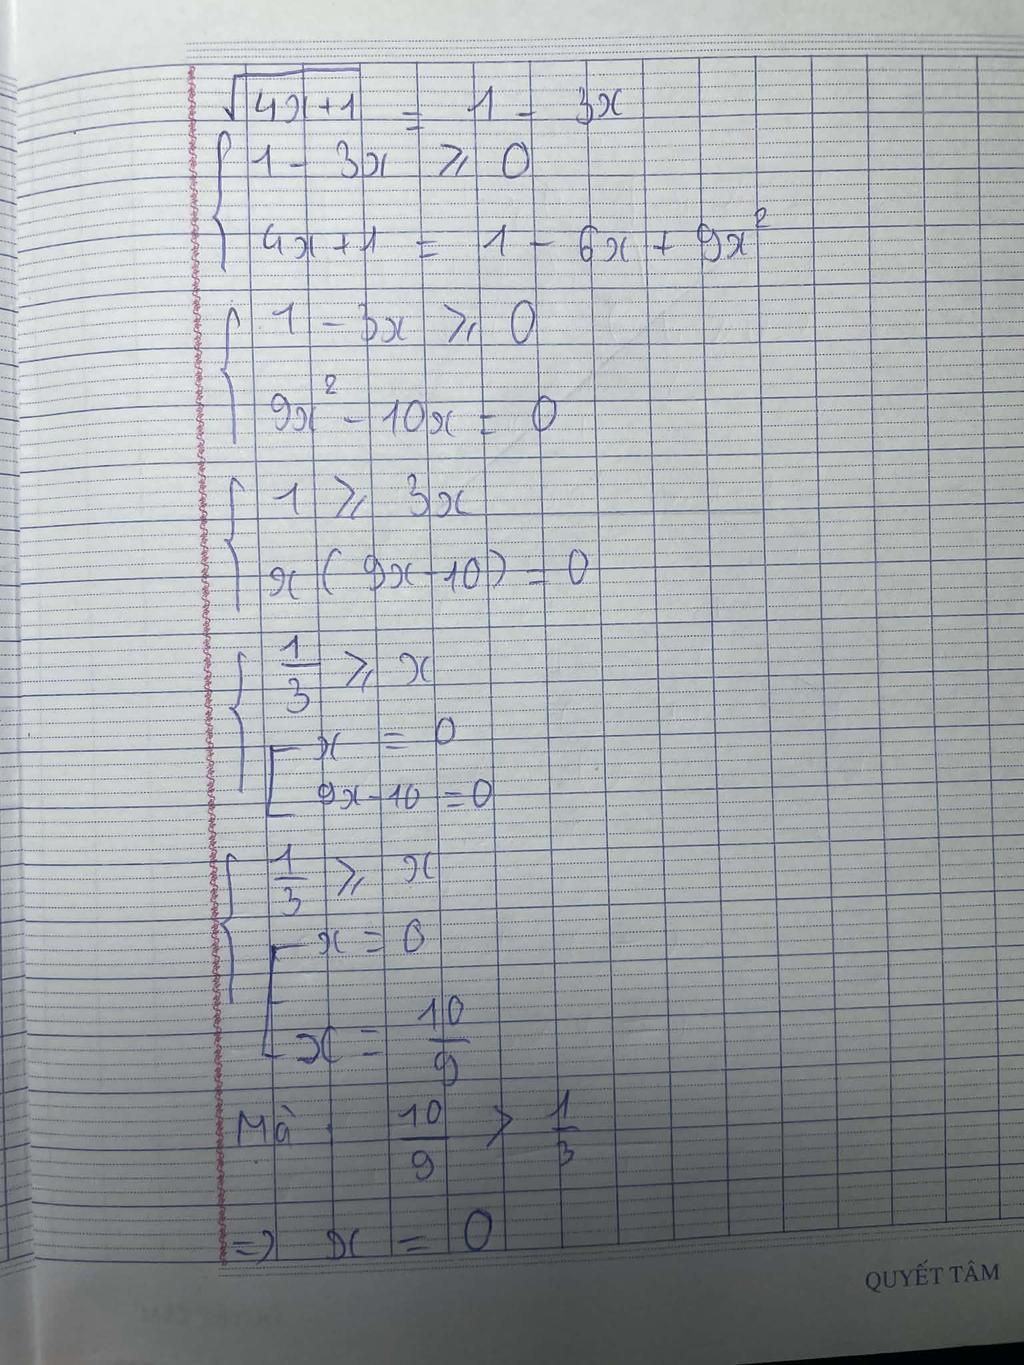 √(4x+1) = 1 - 3x
{ 1 - 3x ⩾ 0
4x+1 = 1 - 6x + 9x²
{ 1 - 3x ⩾ 0
9x² - 10x = 0
{ 1 ⩾ 3x
x(9x-10) = 0
{ 1/3 ⩾ x
[ x = 0
9x-10 = 0
{ 1/3 ⩾ x
[ x = 0
x = 10/9
Mà 10/9 > 1/3
=> x = 0
QUYẾT TÂM